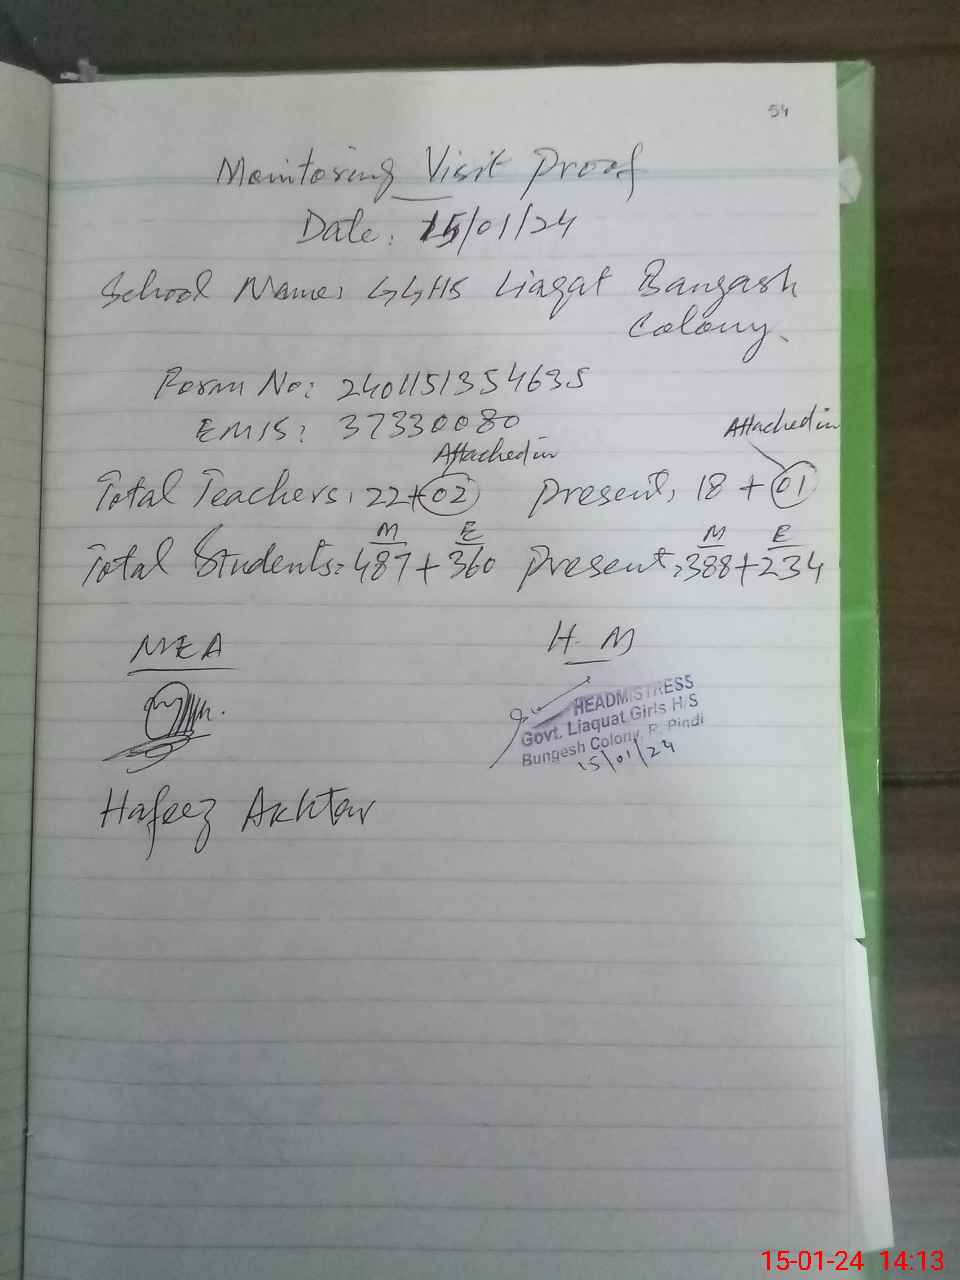 54
Monitoring Visit Proof
Date: 15/01/24
School Name: GGHS Liaqat Bangash
Colony.
Form No: 2401151354635
EMIS: 37330080
Attached in
Attached in
Total Teachers: 22+02 Present: 18 + 01
M E M E
Total Students: 487+360 Present: 388+234
MEA H-M
HEADMISTRESS
Govt. Liaquat Girls H/S
Bungesh Colony, R. Pindi
15/01/24
Hafeez Akhtar
15-01-24 14:13